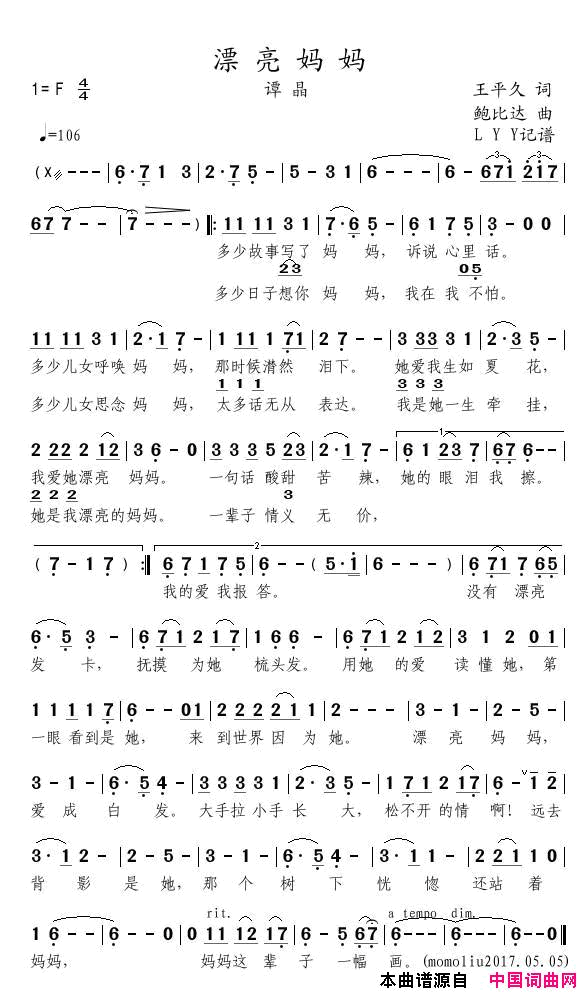 漂亮妈妈
1=F 4/4 谭晶 王平久 词
鲍比达 曲
♩=106 L Y Y记谱
(X --- | 6·7 1 3 | 2·7 5 - | 5 - 3 1 | 6 - - - | 6 - 671 217 |
677 - - | 7 - - - ) ‖: 11 11 3 1 | 7·6 5 - | 6 1 7 5 | 3 - 0 0 |
多少故事写了 妈 妈， 诉说 心里 话。
23 05
多少日子想你 妈 妈， 我在 我 不怕。
11 11 3 1 | 2·1 7 - | 1 11 1 71 | 2 7 - - | 3 333 3 1 | 2·3 5 - |
多少儿女呼唤 妈 妈， 那时候潸然 泪下。 她爱我生如 夏 花，
1 1 1 3 3 3
多少儿女思念 妈 妈， 太多话无从 表达。 我是她一生 牵 挂，
2 22 2 12 | 3 6 - 0 | 3 33 5 23 | 2·1 7 - | 6 1 23 7 | 67 6 - - |
我爱她漂亮 妈妈。 一句话 酸甜 苦 辣， 她的 眼 泪我 擦。
2 2 2 3
她是我漂亮的妈妈。 一辈子 情义 无 价，
( 7 - 1 7 ) :‖ 6 71 7 5 | 6 - - ( 5·1 | 6 - - - ) | 6 71 7 65 |
我的爱 我报 答。 没有 漂亮
6·5 3 - | 6 71 2 17 | 1 6 6 - | 6 71 2 12 | 3 1 2 01 |
发 卡， 抚摸 为她 梳头发。 用她 的爱 读 懂她，第
1 11 1 7 | 6 - - 01 | 2 22 2 21 | 2 - - - | 3 - 1 - | 2 - 5 - |
一眼 看到是 她， 来 到世界 因 为她。 漂 亮 妈 妈，
3 - 1 - | 6·5 4 - | 3 33 3 1 | 2·3 2 - | 1 71 2 17 | 6 - 1 2 |
爱 成 白 发。 大手拉 小手 长 大， 松不开 的情 啊！ 远去
3·1 2 - | 2 - 5 - | 3 - 1 - | 6·5 4 - | 3 - 3·1 | 2 21 1 0 |
背 影 是 她， 那 个 树 下 恍 惚 还站 着
rit. a tempo dim.
1 6 - - | 6 - - 0 | 0 11 12 17 | 6 - 5 67 | 6 - - - | 6 - - 0 ‖
妈妈， 妈妈这 辈子 一幅 画。(momoliu2017.05.05)
本曲谱源自 中国词曲网